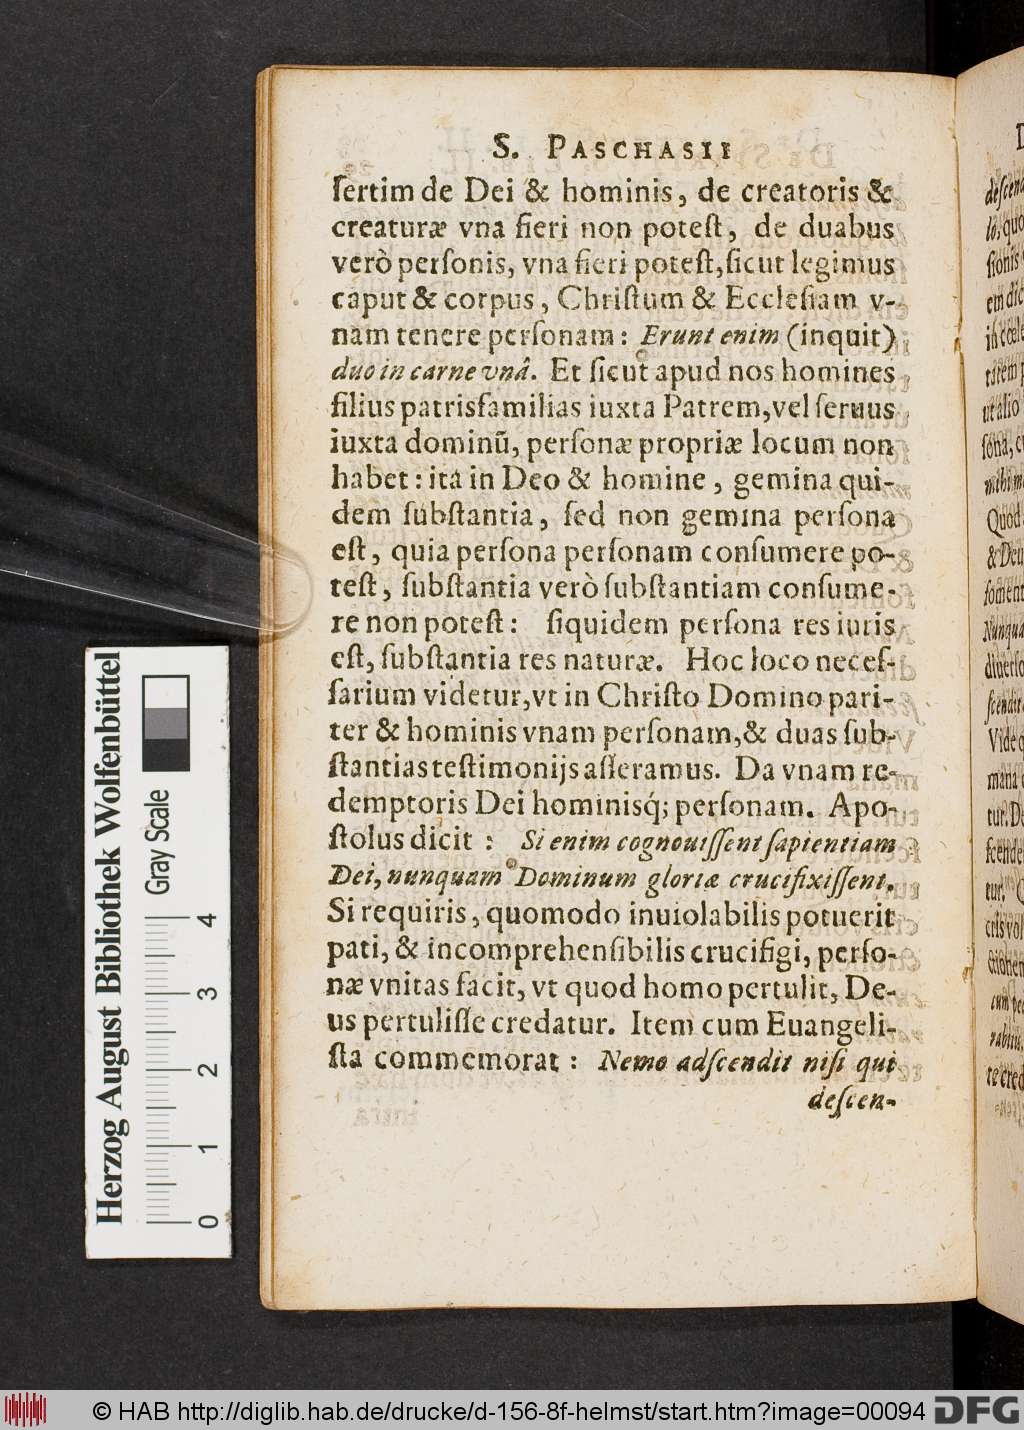 S. PASCHASII
ſertim de Dei & hominis, de creatoris &
creaturæ vna fieri non poteſt, de duabus
verò perſonis, vna fieri poteſt, ſicut legimus
caput & corpus, Chriſtum & Eccleſiam v-
nam tenere perſonam: Erunt enim (inquit)
duo in carne vnâ. Et ſicut apud nos homines
filius patrisfamilias iuxta Patrem, vel ſeruus
iuxta dominũ, perſonæ propriæ locum non
habet: ita in Deo & homine, gemina qui-
dem ſubſtantia, ſed non gemina perſona
eſt, quia perſona perſonam conſumere po-
teſt, ſubſtantia verò ſubſtantiam conſume-
re non poteſt: ſiquidem perſona res iuris
eſt, ſubſtantia res naturæ. Hoc loco neceſ-
ſarium videtur, vt in Chriſto Domino pari-
ter & hominis vnam perſonam, & duas ſub-
ſtantias teſtimonijs aſſeramus. Da vnam re-
demptoris Dei hominisq́; perſonam. Apo-
ſtolus dicit: Si enim cognouiſſent ſapientiam
Dei, nunquam Dominum gloriæ crucifixiſſent.
Si requiris, quomodo inuiolabilis potuerit
pati, & incomprehenſibilis crucifigi, perſo-
næ vnitas facit, vt quod homo pertulit, De-
us pertuliſſe credatur. Item cum Euangeli-
ſta commemorat: Nemo adſcendit niſi qui
deſcen-
Herzog August Bibliothek Wolfenbüttel
Gray Scale
0 1 2 3 4
© HAB http://diglib.hab.de/drucke/d-156-8f-helmst/start.htm?image=00094
DFG